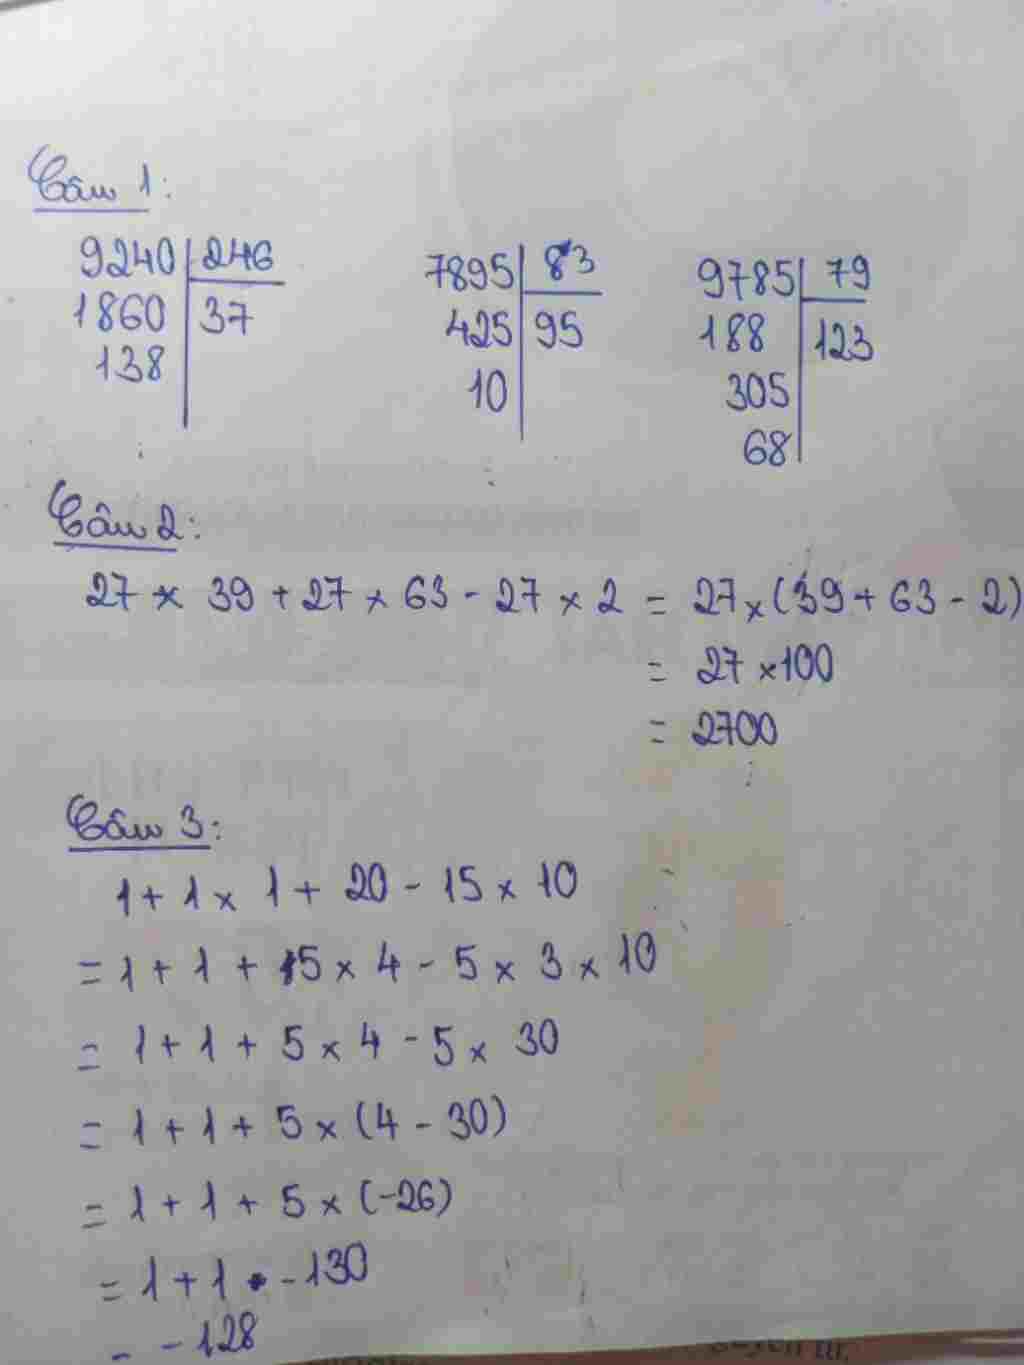 Câu 1:
9240 246 7895 83 9785 79
1860 37 425 95 188 123
138 10 305
68
Câu 2:
27 × 39 + 27 × 63 - 27 × 2 = 27 × (39 + 63 - 2)
= 27 × 100
= 2700
Câu 3:
1 + 1 × 1 + 20 - 15 × 10
= 1 + 1 + 5 × 4 - 5 × 3 × 10
= 1 + 1 + 5 × 4 - 5 × 30
= 1 + 1 + 5 × (4 - 30)
= 1 + 1 + 5 × (-26)
= 1 + 1 - 130
= -128